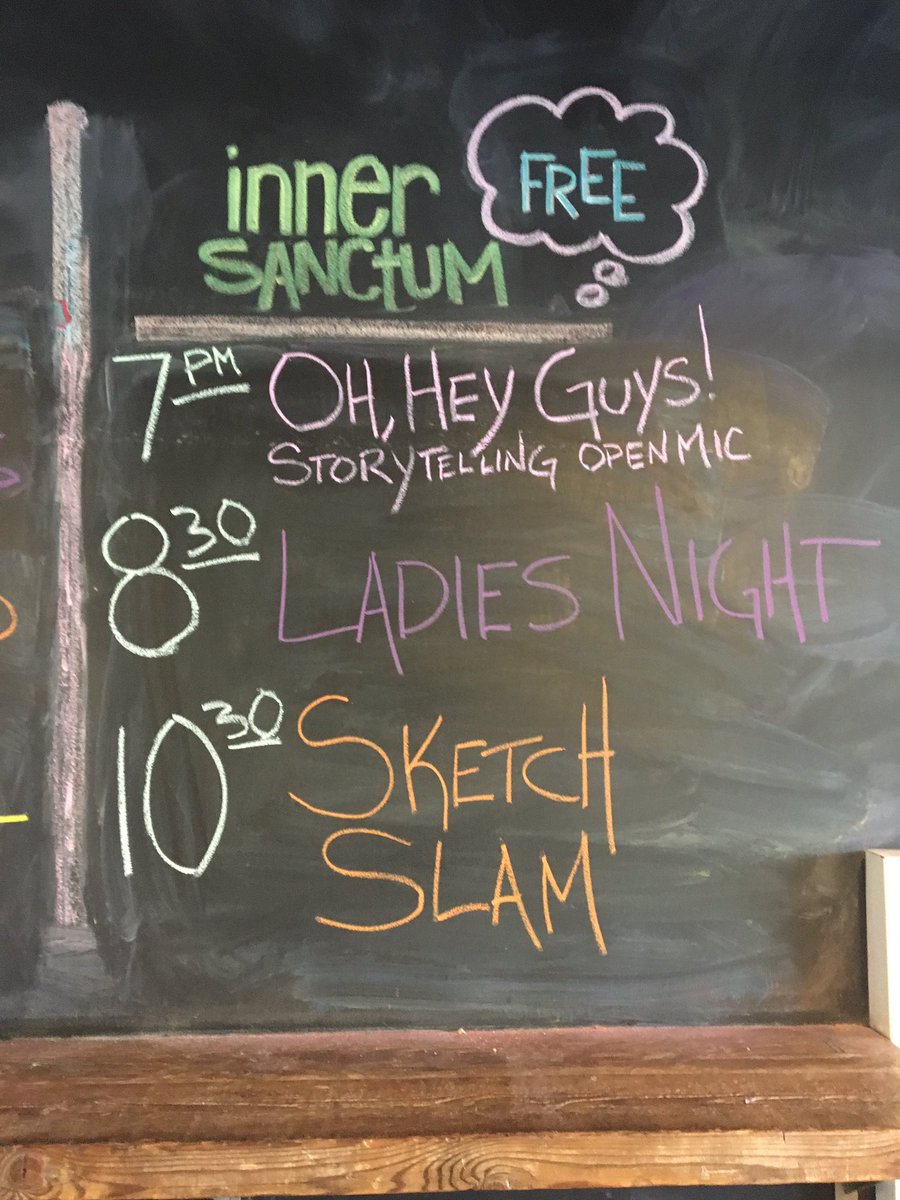 inner
SANCTUM
FREE
7PM OH, HEY GUYS!
STORYTELLING OPEN MIC
830 LADIES NIGHT
1030 SKETCH
SLAM